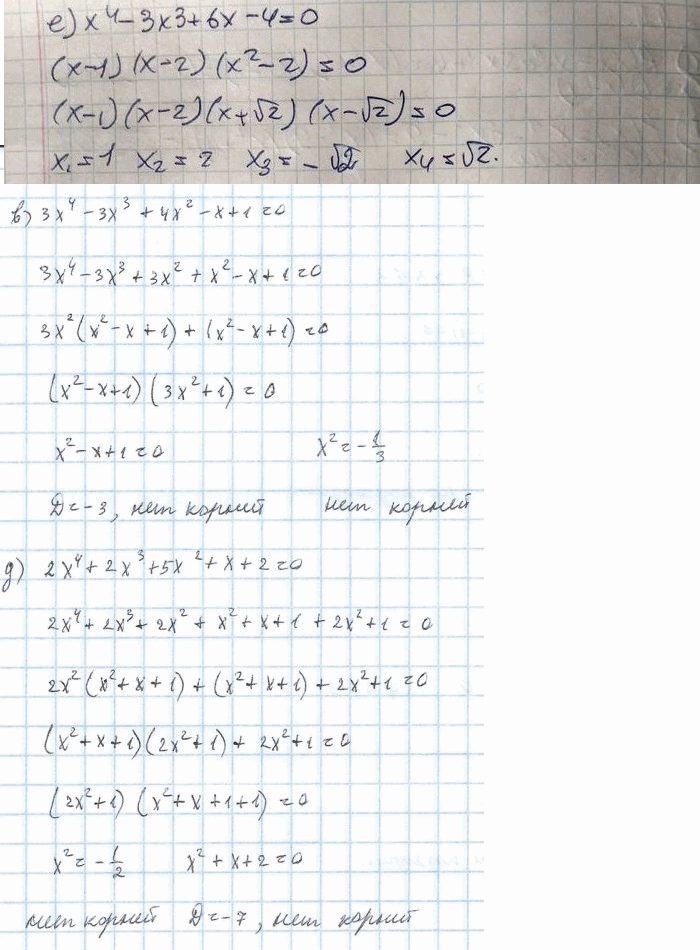 е) x⁴ - 3x3 + 6x - 4 = 0
(x-1) (x-2) (x² - 2) = 0
(x-1) (x-2) (x+√2) (x-√2) = 0
x₁ = 1 x₂ = 2 x₃ = -√2 x₄ = √2.
в) 3x⁴ - 3x³ + 4x² - x + 1 = 0
3x⁴ - 3x³ + 3x² + x² - x + 1 = 0
3x² (x² - x + 1) + (x² - x + 1) = 0
(x² - x + 1) (3x² + 1) = 0
x² - x + 1 = 0 x² = -1/3
D = -3, нет корней нет корней
д) 2x⁴ + 2x³ + 5x² + x + 2 = 0
2x⁴ + 2x³ + 2x² + x² + x + 1 + 2x² + 1 = 0
2x² (x² + x + 1) + (x² + x + 1) + 2x² + 1 = 0
(x² + x + 1) (2x² + 1) + 2x² + 1 = 0
(2x² + 1) (x² + x + 1 + 1) = 0
x² = -1/2 x² + x + 2 = 0
нет корней D = -7, нет корней